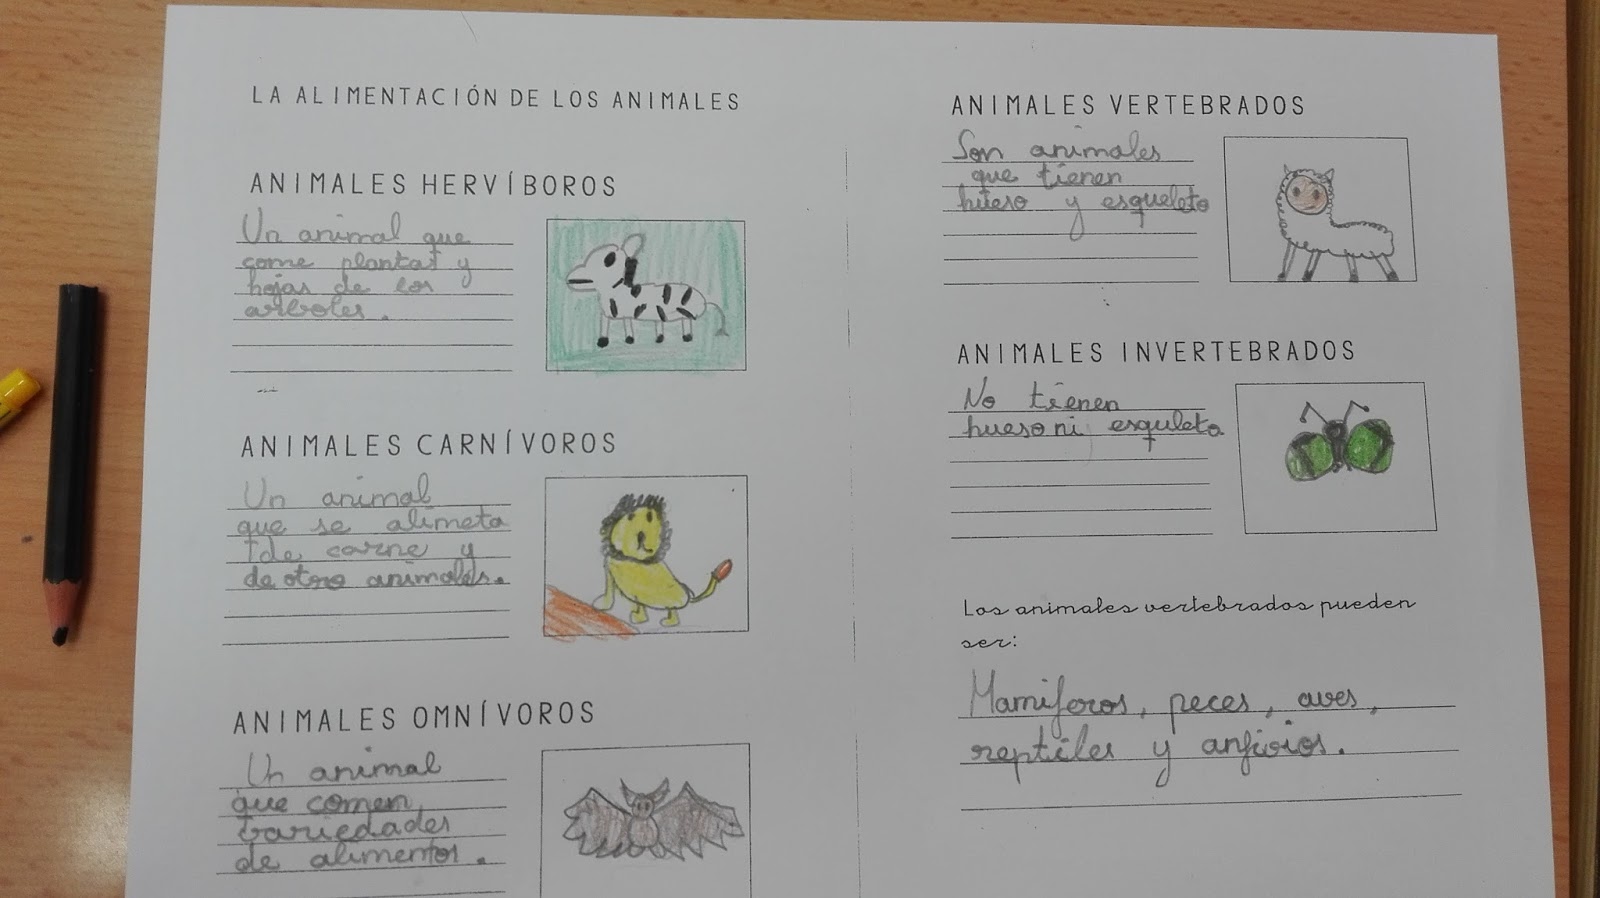 LA ALIMENTACIÓN DE LOS ANIMALES
ANIMALES HERVÍBOROS
Un animal que
come plantas y
hojas de los
arboles.
ANIMALES CARNÍVOROS
Un animal
que se alimeta
de carne y
de otro animales.
ANIMALES OMNÍVOROS
Un animal
que comen
variedades
de alimentos.
ANIMALES VERTEBRADOS
Son animales
que tienen
hueso y esqueleto
ANIMALES INVERTEBRADOS
No tienen
hueso ni esquleto
Los animales vertebrados pueden
ser:
Mamiferos, peces, aves,
reptiles y anfivios.